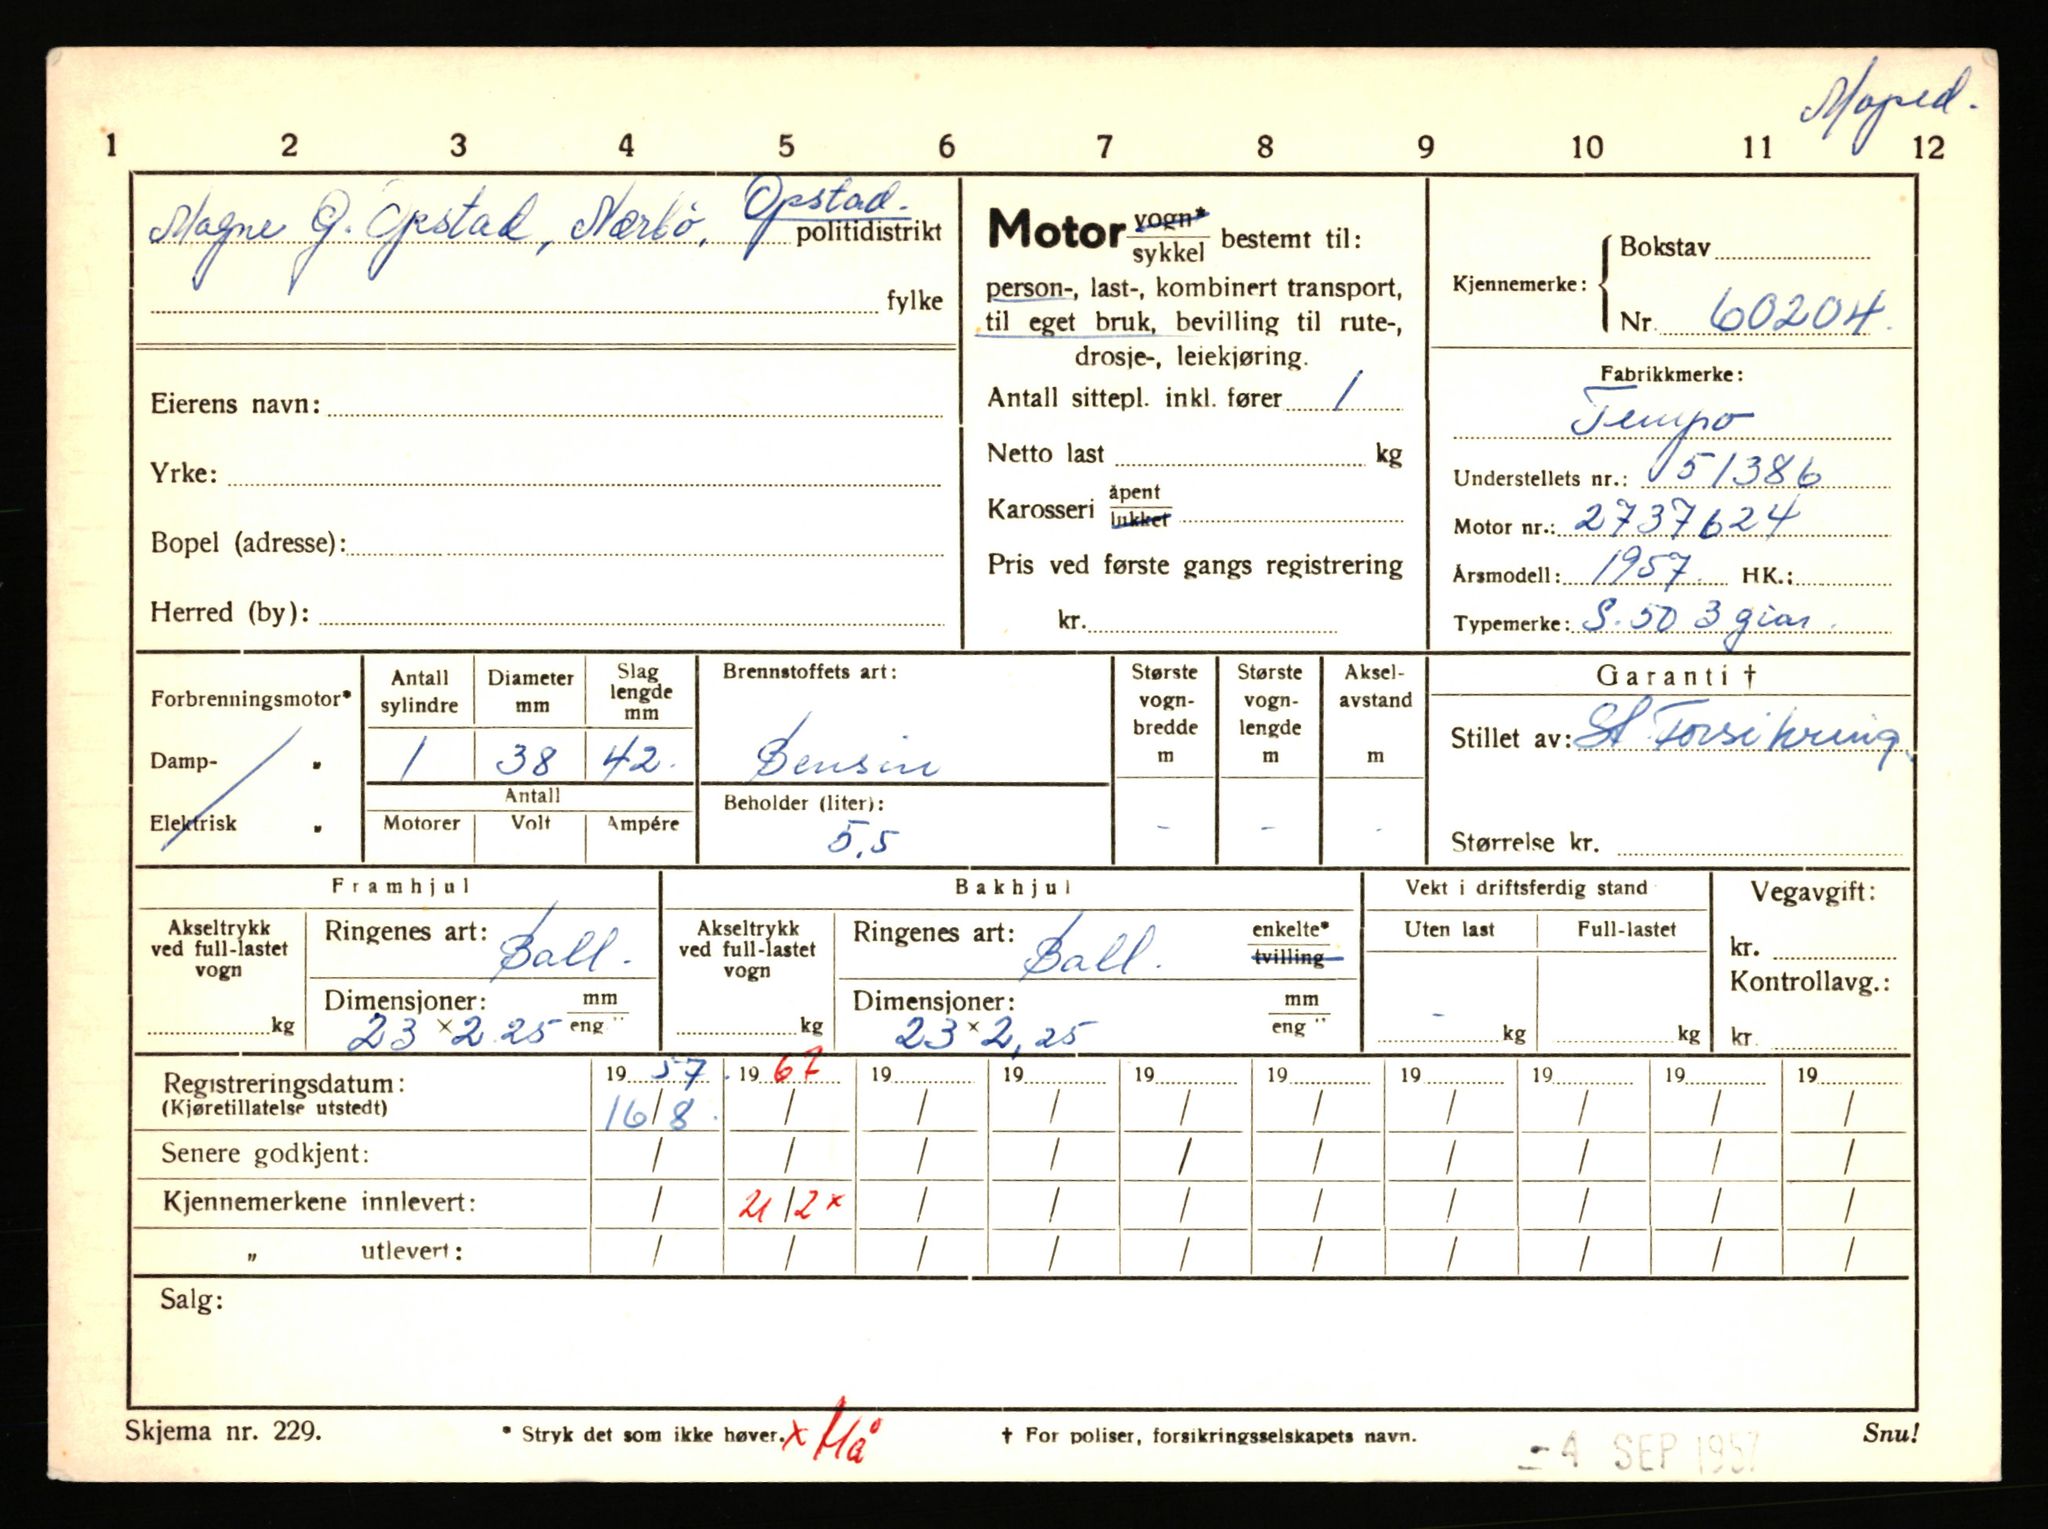 Moped.
1 2 3 4 5 6 7 8 9 10 11 12
Opstad.
Magne G. Opstad, Nærbö, politidistrikt
fylke
Eierens navn:
Yrke:
Bopel (adresse):
Herred (by):
Motor vogn* / sykkel bestemt til:
person-, last-, kombinert transport,
til eget bruk, bevilling til rute-,
drosje-, leiekjøring.
Antall sittepl. inkl. fører 1
Netto last kg
Karosseri åpent / lukket
Pris ved første gangs registrering
kr.
Kjennemerke: Bokstav
Nr. 60204.
Fabrikkmerke:
Tempo
Understellets nr.: 51386
Motor nr.: 2737624
Årsmodell: 1957. HK.:
Typemerke: S. 50 3 giar.
Forbrenningsmotor*
Damp- „
Elektrisk „
Antall sylindre Diameter mm Slag lengde mm
1 38 42.
Antall
Motorer Volt Ampére
Brennstoffets art:
Bensin
Beholder (liter):
5,5
Største vogn- bredde m
-
Største vogn- lengde m
-
Aksel- avstand m
-
Garanti †
Stillet av: Forsikring.
Størrelse kr.
Framhjul
Akseltrykk
ved full-lastet
vogn
kg
Ringenes art: Ball.
Dimensjoner: mm / eng "
23 x 2.25
Bakhjul
Akseltrykk
ved full-lastet
vogn
kg
Ringenes art: Ball. enkelte* / tvilling
Dimensjoner: mm / eng "
23 x 2,25
Vekt i driftsferdig stand
Uten last Full-lastet
-
kg kg
Vegavgift:
kr.
Kontrollavg.:
kr.
Registreringsdatum: 19 57. 19 67 19 19 19 19 19 19 19 19
(Kjøretillatelse utstedt) 16/8. / / / / / / / / /
Senere godkjent: / / / / / / / / / /
Kjennemerkene innlevert: / 21/2 x / / / / / / / /
„ utlevert: / / / / / / / / / /
Salg:
Skjema nr. 229. * Stryk det som ikke høver. x Hå † For poliser, forsikringsselskapets navn. Snu!
-4 SEP 1957